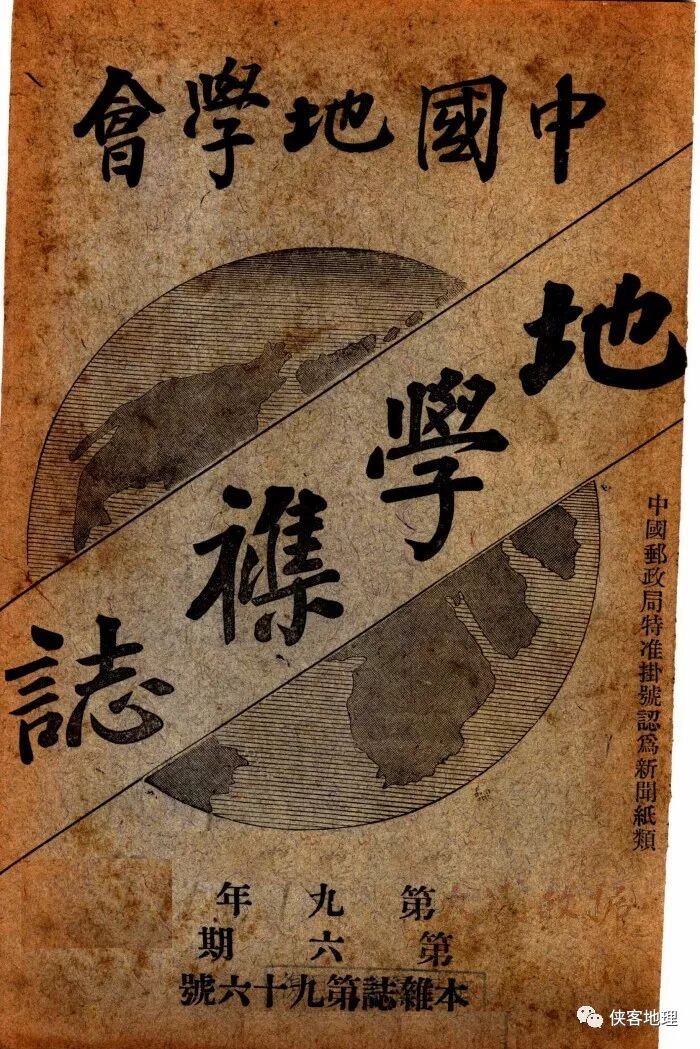 中國地學會
地學襍誌
中國郵政局特准掛號認爲新聞紙類
第九年
第六期
本雜誌第九十六號
侠客地理